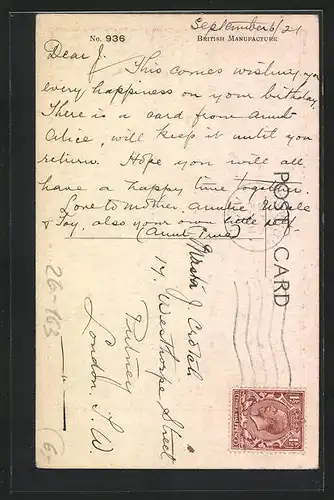 September 6/21
No. 936
BRITISH MANUFACTURE
Dear J.
This comes wishing you
every happiness on your birthday
There is a card from Aunt
Alice, will keep it until you
return. Hope you will all
have a happy time together.
Love to mother, Auntie, Uncle
& Fay, also your own little self.
(Aunt
POST CARD
Master J.
17, Westhorpe Street
Putney
London. S.W.
26-163